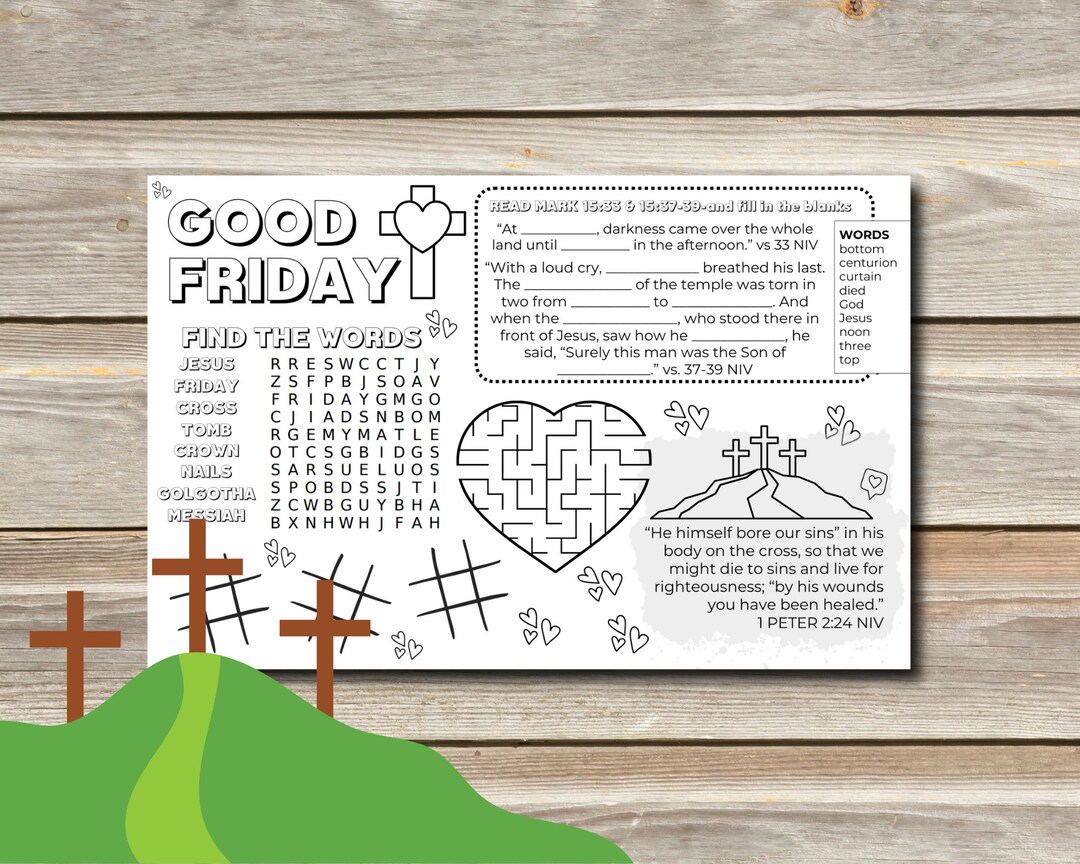 GOOD
FRIDAY
FIND THE WORDS
JESUS
FRIDAY
CROSS
TOMB
CROWN
NAILS
GOLGOTHA
MESSIAH
R R E S W C C T J Y
Z S F P B J S O A V
F R I D A Y G M G O
C J I A D S N B O M
R G E M Y M A T L E
O T C S G B I D G S
S A R S U E L U O S
S P O B D S S J T I
Z C W B G U Y B H A
B X N H W H J F A H
READ MARK 15:33 & 15:37-39-and fill in the blanks
“At _________, darkness came over the whole
land until _________ in the afternoon.” vs 33 NIV
“With a loud cry, ____________ breathed his last.
The ______________ of the temple was torn in
two from __________ to _____________. And
when the _______________, who stood there in
front of Jesus, saw how he ____________, he
said, “Surely this man was the Son of
____________.” vs. 37-39 NIV
WORDS
bottom
centurion
curtain
died
God
Jesus
noon
three
top
“He himself bore our sins” in his
body on the cross, so that we
might die to sins and live for
righteousness; “by his wounds
you have been healed.”
1 PETER 2:24 NIV